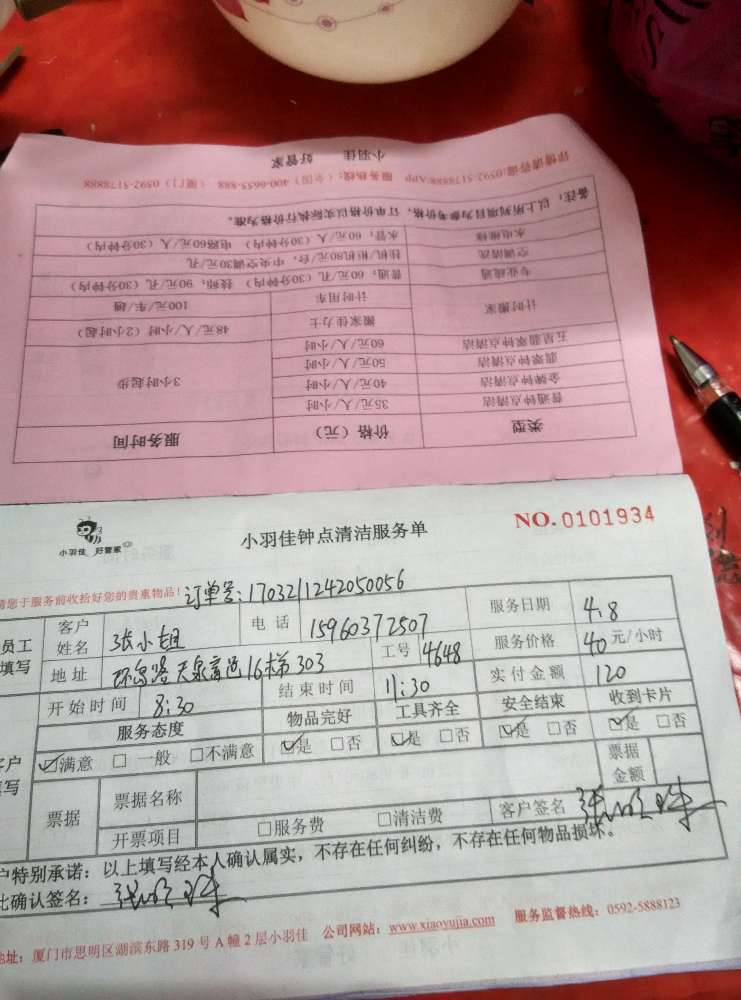 小羽佳 好管家
详情请咨询:0592-5178888/APP 服务热线:(全国) 400-6655-888 (厦门) 0592-5178888
类型 价格(元) 服务时间
普通钟点清洁 35元/人/小时 3小时起步
金牌钟点清洁 40元/人/小时
翡翠钟点清洁 50元/人/小时
五星翡翠钟点清洁 60元/人/小时
计时搬家 搬家佳力士 48元/人/小时(2小时起)
计时用车 100元/车/趟
专业疏通 普通:60元/孔(30分钟内) 技师:90元/孔(30分钟内)
空调清洗 挂机/柜机80元/台,中央空调30元/孔
水电维修 水管:60元/人(30分钟内) 电路60元/人(30分钟内)
备注:以上所列项目为参考价格,订单价格以实际执行价格为准。
小羽佳 好管家
小羽佳钟点清洁服务单
NO.0101934
请您于服务前收拾好您的贵重物品!订单号:1703211242050056
员工填写
客户姓名 张小姐 电话 15960372507 服务日期 4.8
地址 环岛路天泉 16梯303 工号 4648 服务价格 40 元/小时
开始时间 8:30 结束时间 11:30 实付金额 120
服务态度 物品完好 工具齐全 安全结束 收到卡片
☑满意 □一般 □不满意 ☑是 □否 ☑是 □否 ☑是 □否 ☑是 □否
票据 票据名称 票据金额
开票项目 □服务费 □清洁费 客户签名
户特别承诺:以上填写经本人确认属实,不存在任何纠纷,不存在任何物品损坏。
此确认签名:
地址:厦门市思明区湖滨东路319号A幢2层小羽佳 公司网站:www.xiaoyujia.com 服务监督热线:0592-5888123